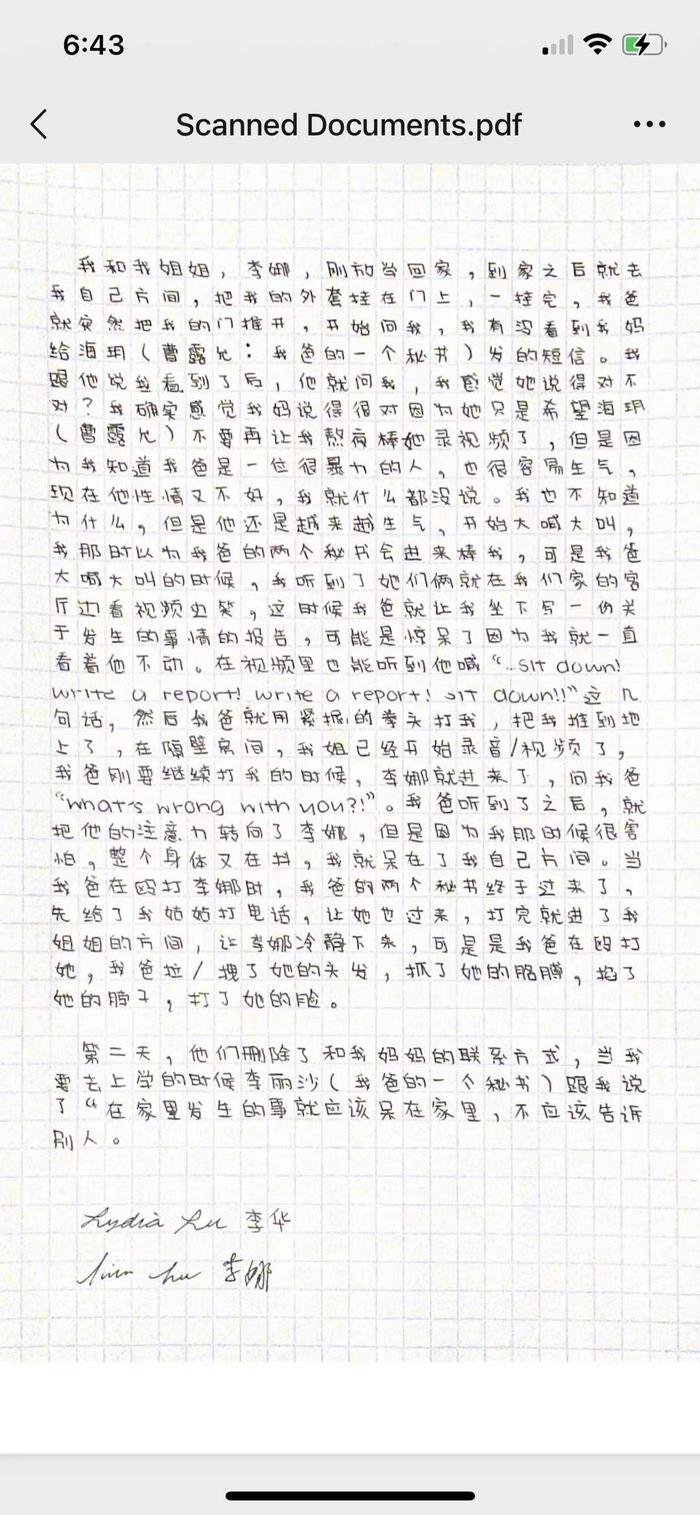 6:43
Scanned Documents.pdf
我和我姐姐，李娜，刚放当回家，到家之后就去
我自己方间，把我的外套挂在门上，一挂完，我爸
就突然把我的门推开，开始问我，我有没看到我妈
给海玥（曹露允：我爸的一个秘书）发的短信。我
跟他说我看到了后，他就问我，我感觉她说得对不
对？我确实感觉我妈说得很对因为她只是希望海玥
（曹露允）不要再让我熬夜棒她录视频了，但是因
为我知道我爸是一位很暴力的人，也很容易生气，
现在他性情又不好，我就什么都没说。我也不知道
为什么，但是他还是越来越生气，开始大喊大叫，
我那时以为我爸的两个秘书会进来棒我，可是我爸
大喊大叫的时候，我听到了她们俩就在我们家的客
厅边看视频边笑，这时候我爸就让我坐下写一份关
于发生的事情的报告，可能是惊呆了因为我就一直
看着他不动。在视频里也能听到他喊“...sit down!
write a report! write a report! sit down!!”这几
句话，然后我爸就用紧握的拳头打我，把我推到地
上了，在隔壁房间，我姐已经开始录音/视频了，
我爸刚要继续打我的时候，李娜就进来了，问我爸
“what's wrong with you?!”。我爸听到了之后，就
把他的注意力转向了李娜，但是因为我那时候很害
怕，整个身体又在抖，我就呆在了我自己方间。当
我爸在殴打李娜时，我爸的两个秘书终于过来了，
先给了我姑姑打电话，让她也过来，打完就进了我
姐姐的方间，让李娜冷静下来，可是是我爸在殴打
她，我爸拉/拽了她的头发，抓了她的胳膊，掐了
她的脖子，打了她的脸。
第二天，他们删除了和我妈妈的联系方式，当我
要去上学的时候李丽沙（我爸的一个秘书）跟我说
了“在家里发生的事就应该呆在家里，不应该告诉
别人。
Lydia Lu 李华
lu 李娜